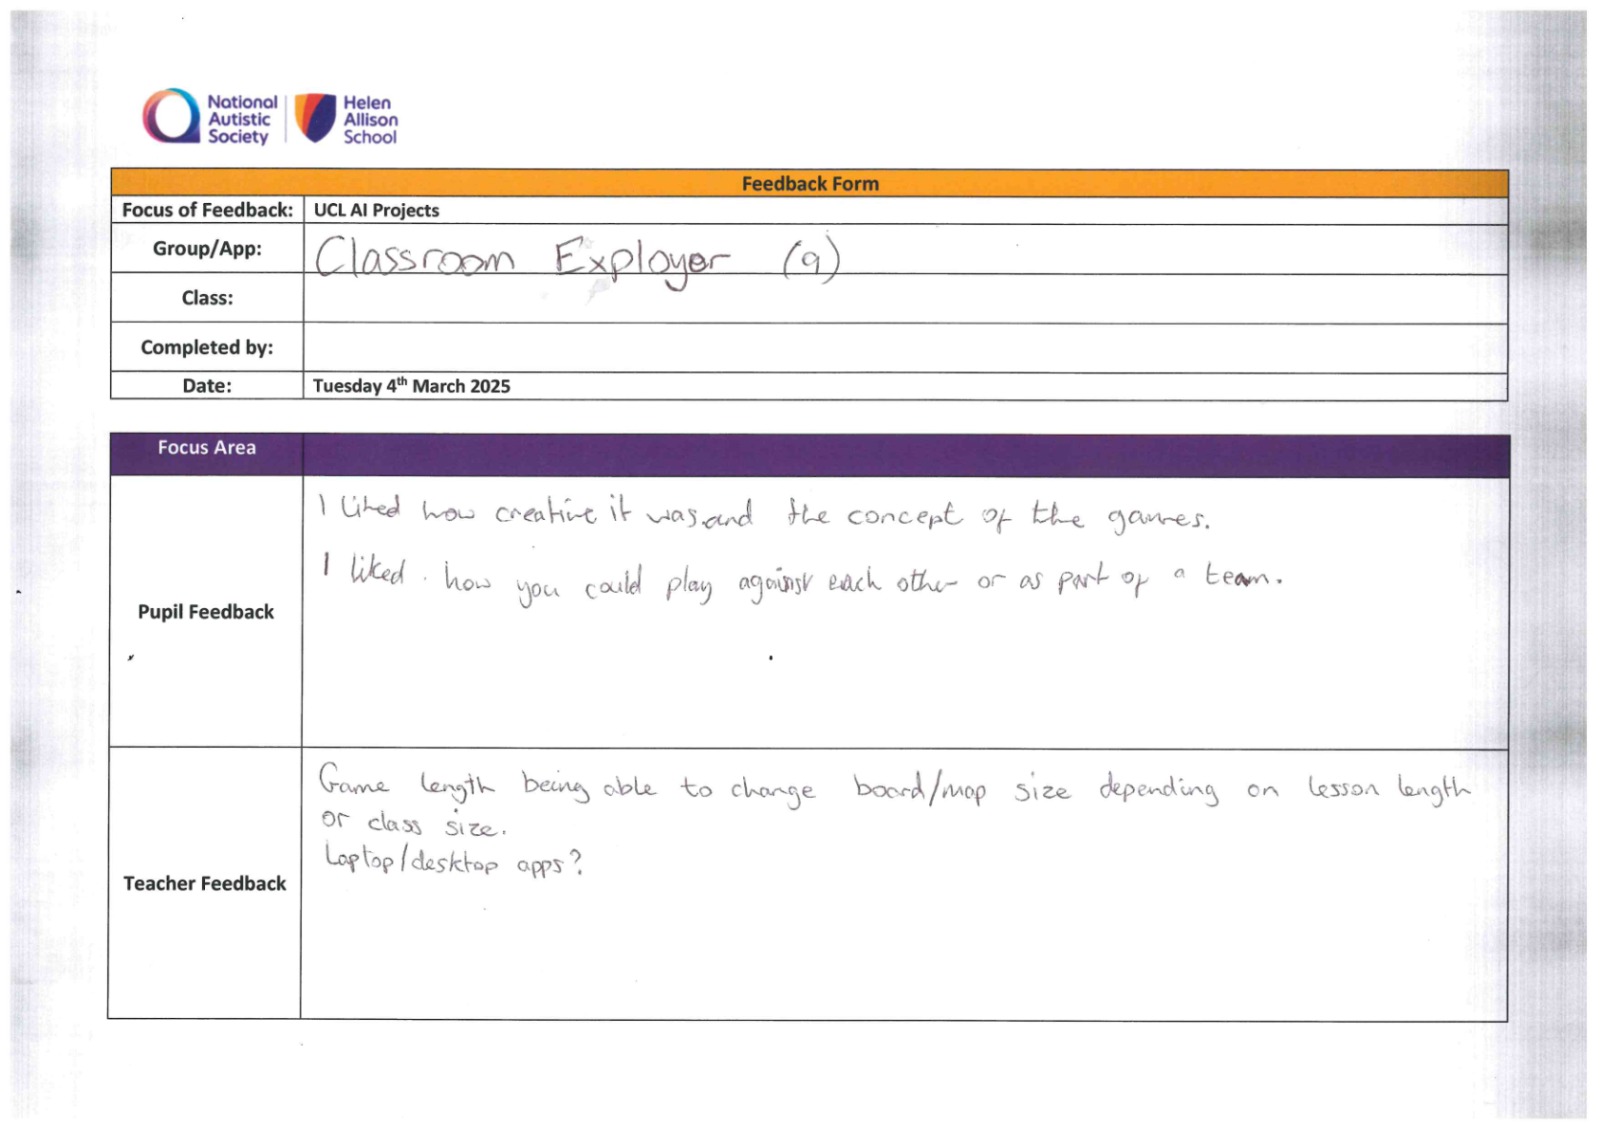 National Autistic Society
Helen Allison School
Feedback Form
Focus of Feedback: UCL AI Projects
Group/App: Classroom Exployer (9)
Class:
Completed by:
Date: Tuesday 4th March 2025
Focus Area
Pupil Feedback
I liked how creative it was and the concept of the games.
I liked how you could play against each other or as part of a team.
Teacher Feedback
Game length being able to change board/map size depending on lesson length
or class size.
Laptop/desktop apps?